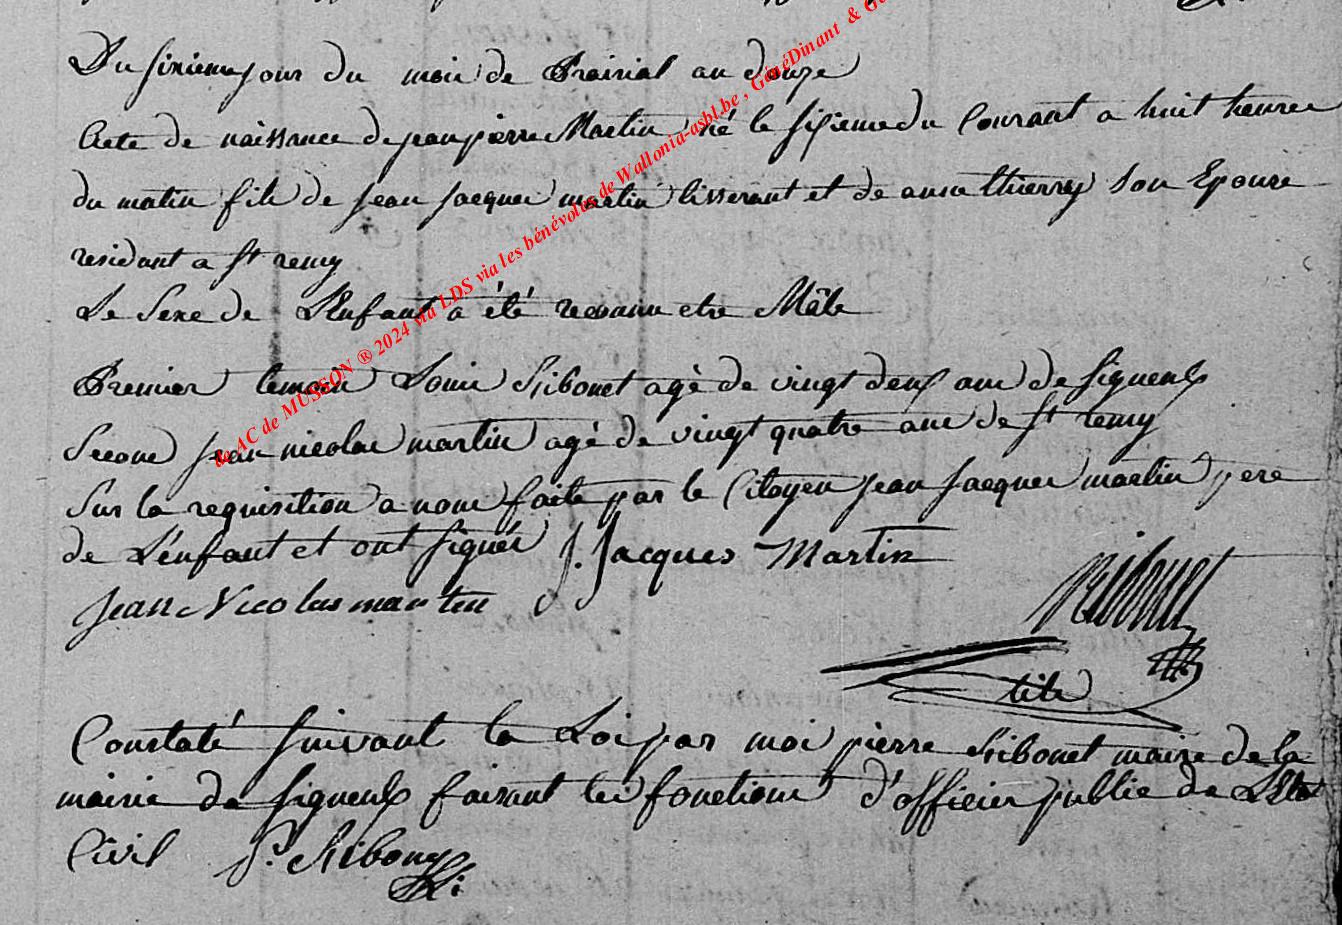 Du sixieme jour du mois de Prairial an douze
Acte de naissance de jean pierre Martin né le sixieme du Courant a huit heures
du matin fils de jean jacques martin tisserant et de anne thierry son Epouse
residant a St remy
Le Sexe de L'Enfant a été reconnu etre Mâle
Premier temoin Louis Ribonet agé de vingt deux ans de Signeulx
Second jean nicolas martin agé de vingt quatre ans de St remy
Sur la requisition a nous faite par le Citoyen jean jacques martin pere
de L'enfant et ont signés J. Jacques Martin
jean Nicolas martin Ribonet
Constaté suivant la Loi par moi pierre Ribonet maire de la
mairie de Signeulx faisant les fonctions d'officier public de L'Etat
Civil P. Ribonet
de AC de MUSSON ® 2024 via LDS via les bénévoles de Wallonia-asbl.be , GénéDinant & G